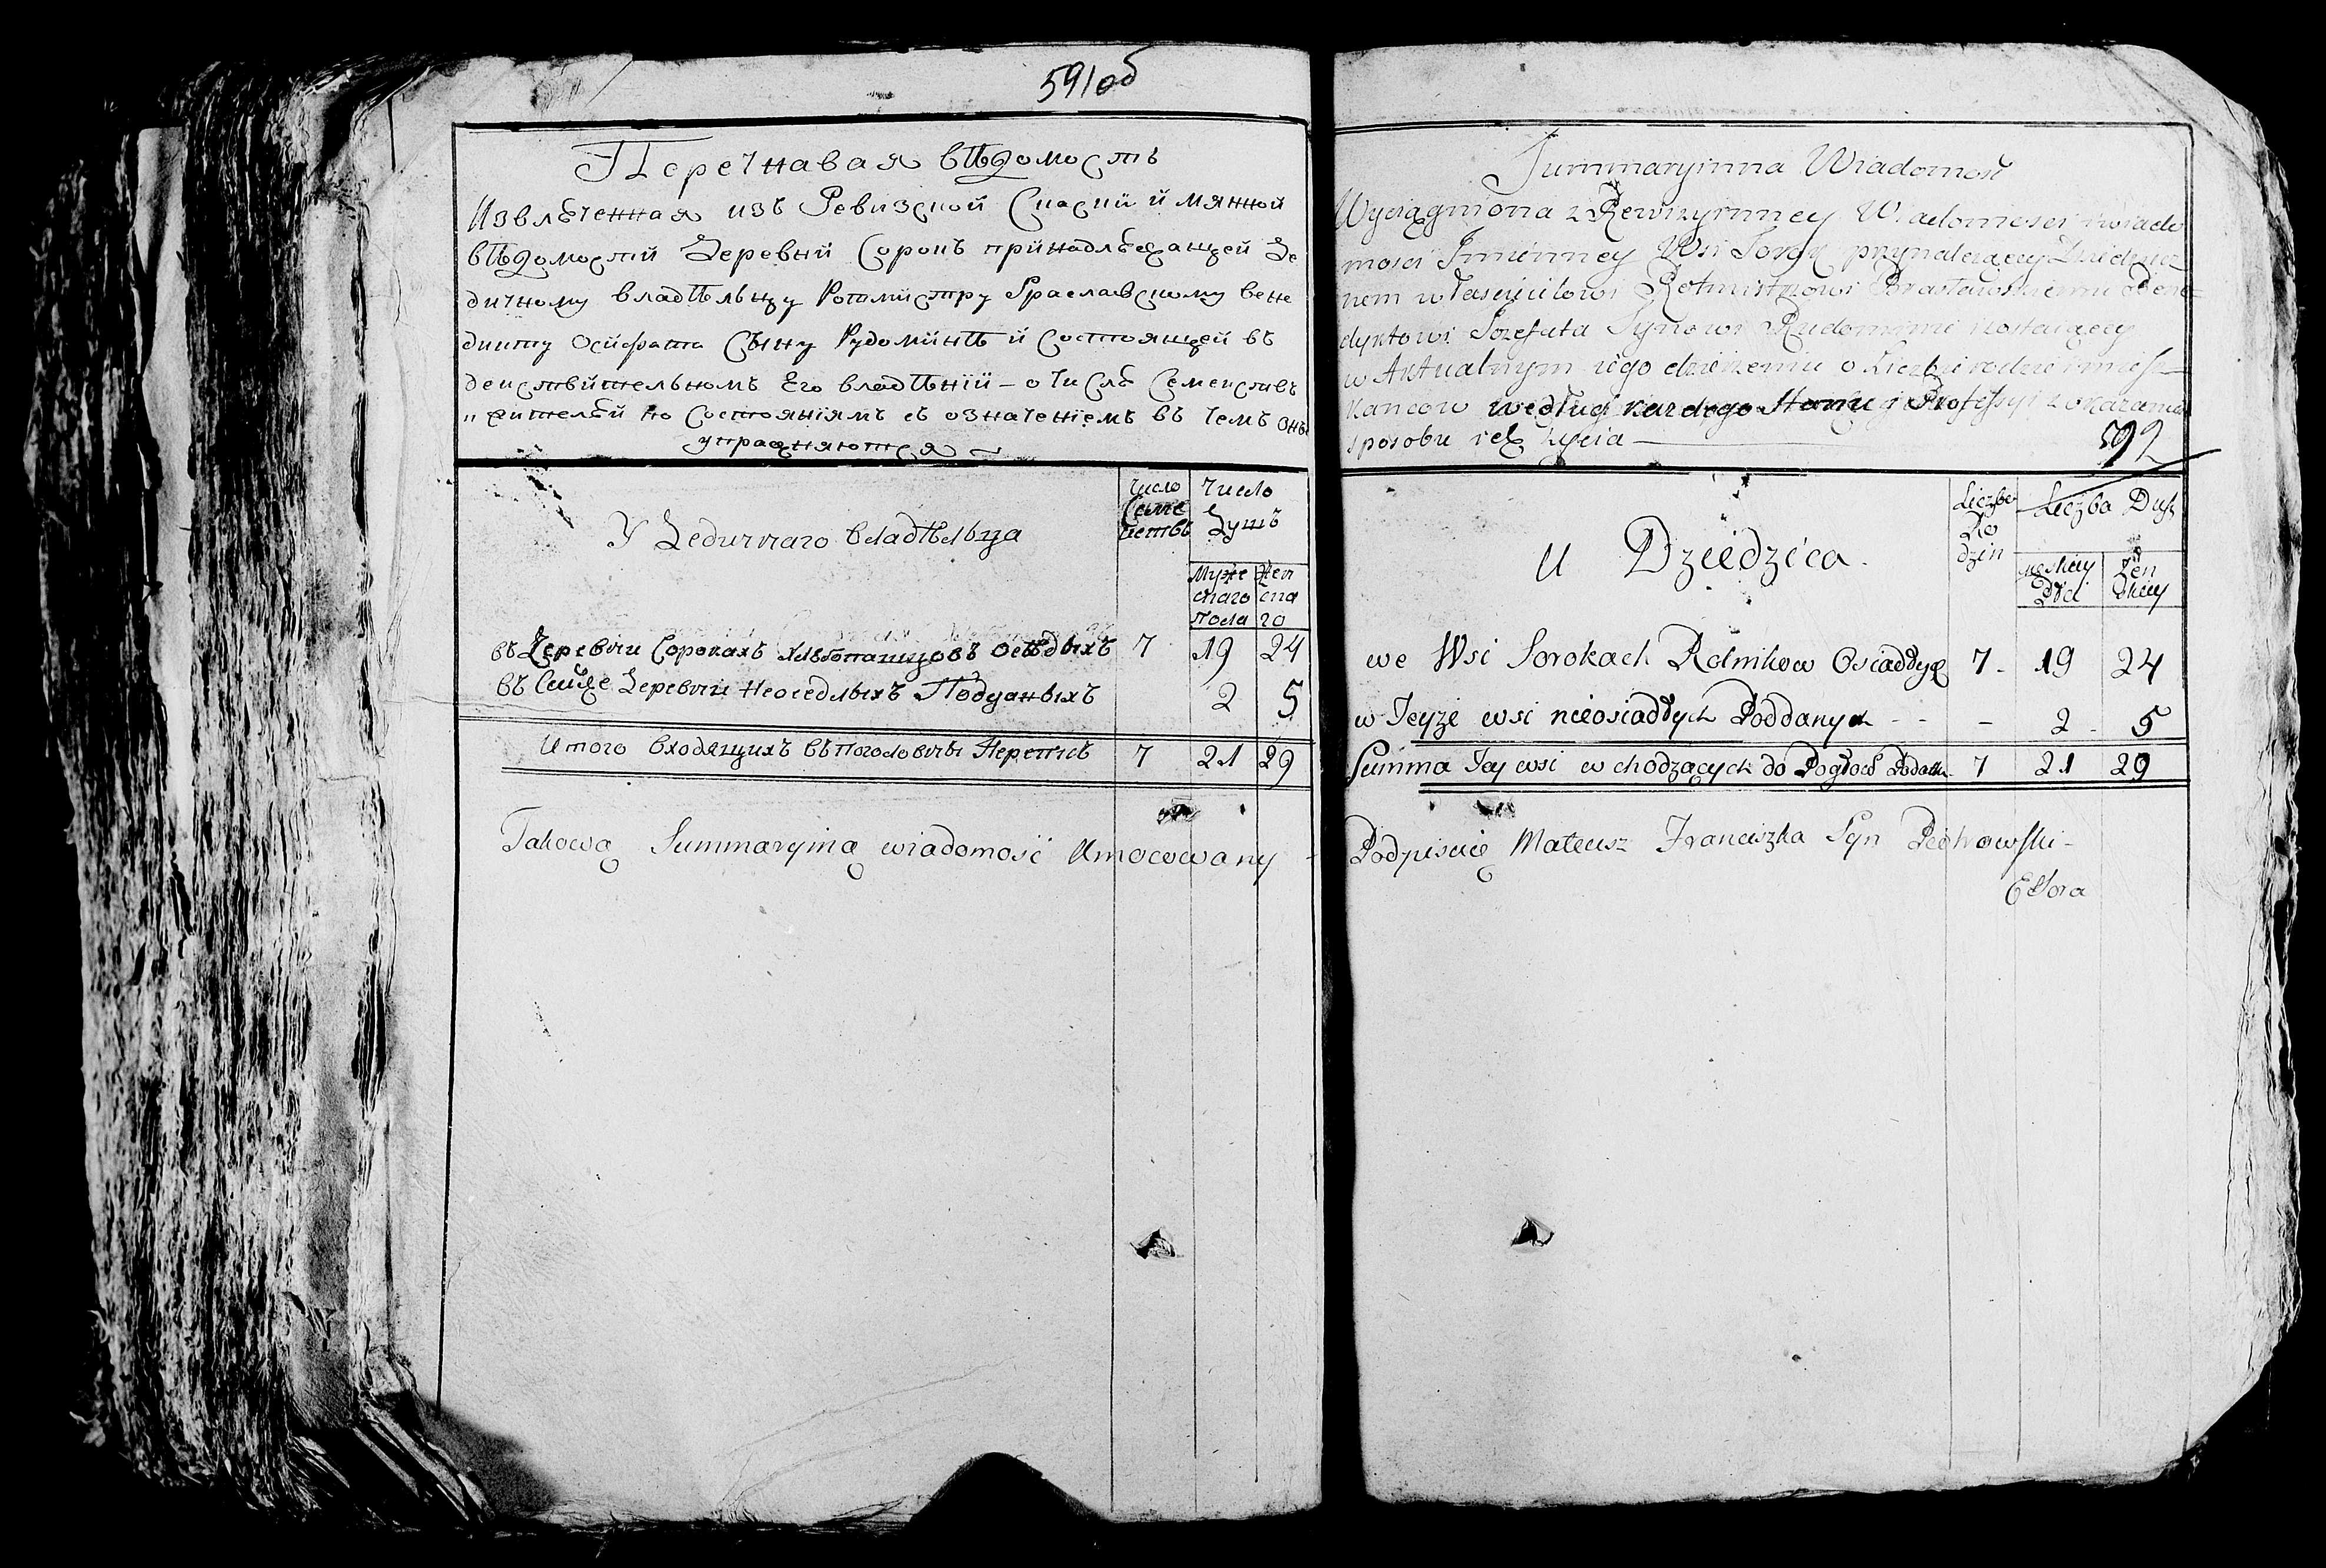 591об
Перечнавая вѣдомость
Извлѣченная изъ Ревизской Сказки имянной
вѣдомости Деревни Сорокъ принадлѣжащей Де
дичному владѣльцу Ротмистру Браславскому Бене
дикту Осифата Сыну Рудоминѣ и Состоящей въ
действительномъ Его владѣніи – о Числѣ Семействъ
и жителѣй по Состояніямъ съ означеніемъ въ чемъ оны
упражняются
У Дедичнаго владѣльца
Число Семе йствъ
Число Душъ
Муже скаго Пола
Жен ска го
въ Деревни Сорокахъ хлѣбопашцовъ осѣдлыхъ 7 19 24
въ Сейже Деревни неоседлыхъ Подданыхъ 2 5
Итого входящихъ въ поголовны Перепись 7 21 29
Takową Summaryiną wiadomość Umocowany
592
Summaryinna Wiadomość
Wyciągniona z Rewizyinney Wiadomości
mości Imienney Wsi Sorok przynależącey Dziedzicz
nem właścicielowi Rotmistrzowi Brasławskiemu Bene
dyktowi Jozefata Synowi Rudominie zostaiącey
w Aktualnym iego dzierżeniu o Liczbie rodzin i miesz
kancow według kazdego Stanu i Professyi z okazaniem
sposobu ich życia
U Dziedzica.
Liczba Ro dzin
Liczba Dusz
męskiey Płci
Żeń skiey
we Wsi Sorokach Rolnikow Osiadłych 7 19 24
w Teyże wsi nieosiadłych Poddanych - - - 2 5
Summa Tey wsi wchodzących do Pogłow Podatku 7 21 29
Podpisuię Mateusz Franciszka Syn Piotrowski